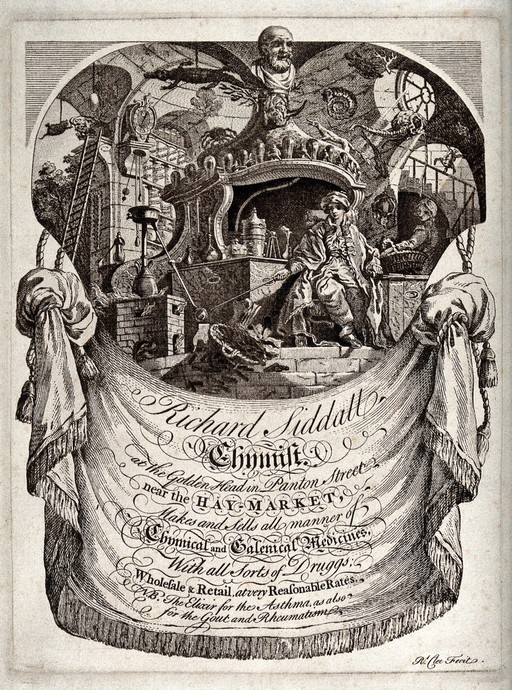 Richard Siddall,
Chymist.
at the Golden Head in Panton Street
near the HAY-MARKET,
Makes and Sells all manner of
Chymical and Galenical Medicines,
With all Sorts of Druggs.
Wholeſale & Retail, at very Reaſonable Rates.
NB. The Elixir for the Asthma, as also
for the Gout and Rheumatism
Rd. Clee Fecit.